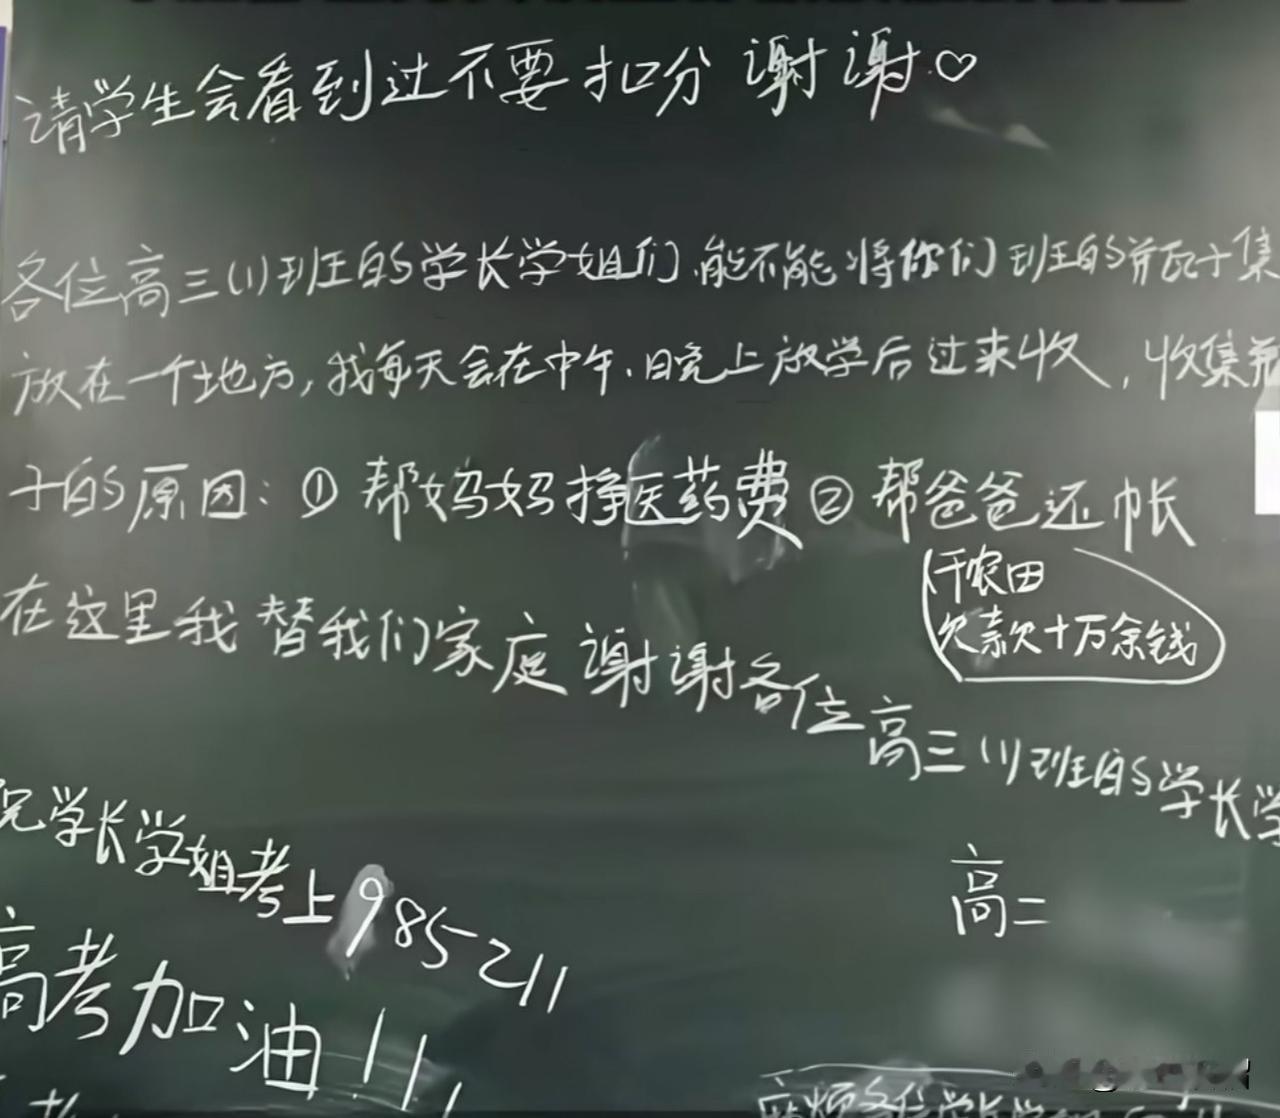 请学生会看到过不要扣分 谢谢♡
各位高三(1)班的学长学姐们、能不能将你们班的并瓦子集
放在一个地方,我每天会在中午、晚上放学后过来收,收集并
子的原因:① 帮妈妈挣医药费 ② 帮爸爸还帐
(干农田
欠款十万余钱)
在这里我替我们家庭谢谢各位高三(1)班的学长学
祝学长学姐考上985 211
高二
高考加油!!!
麻烦各位学长学